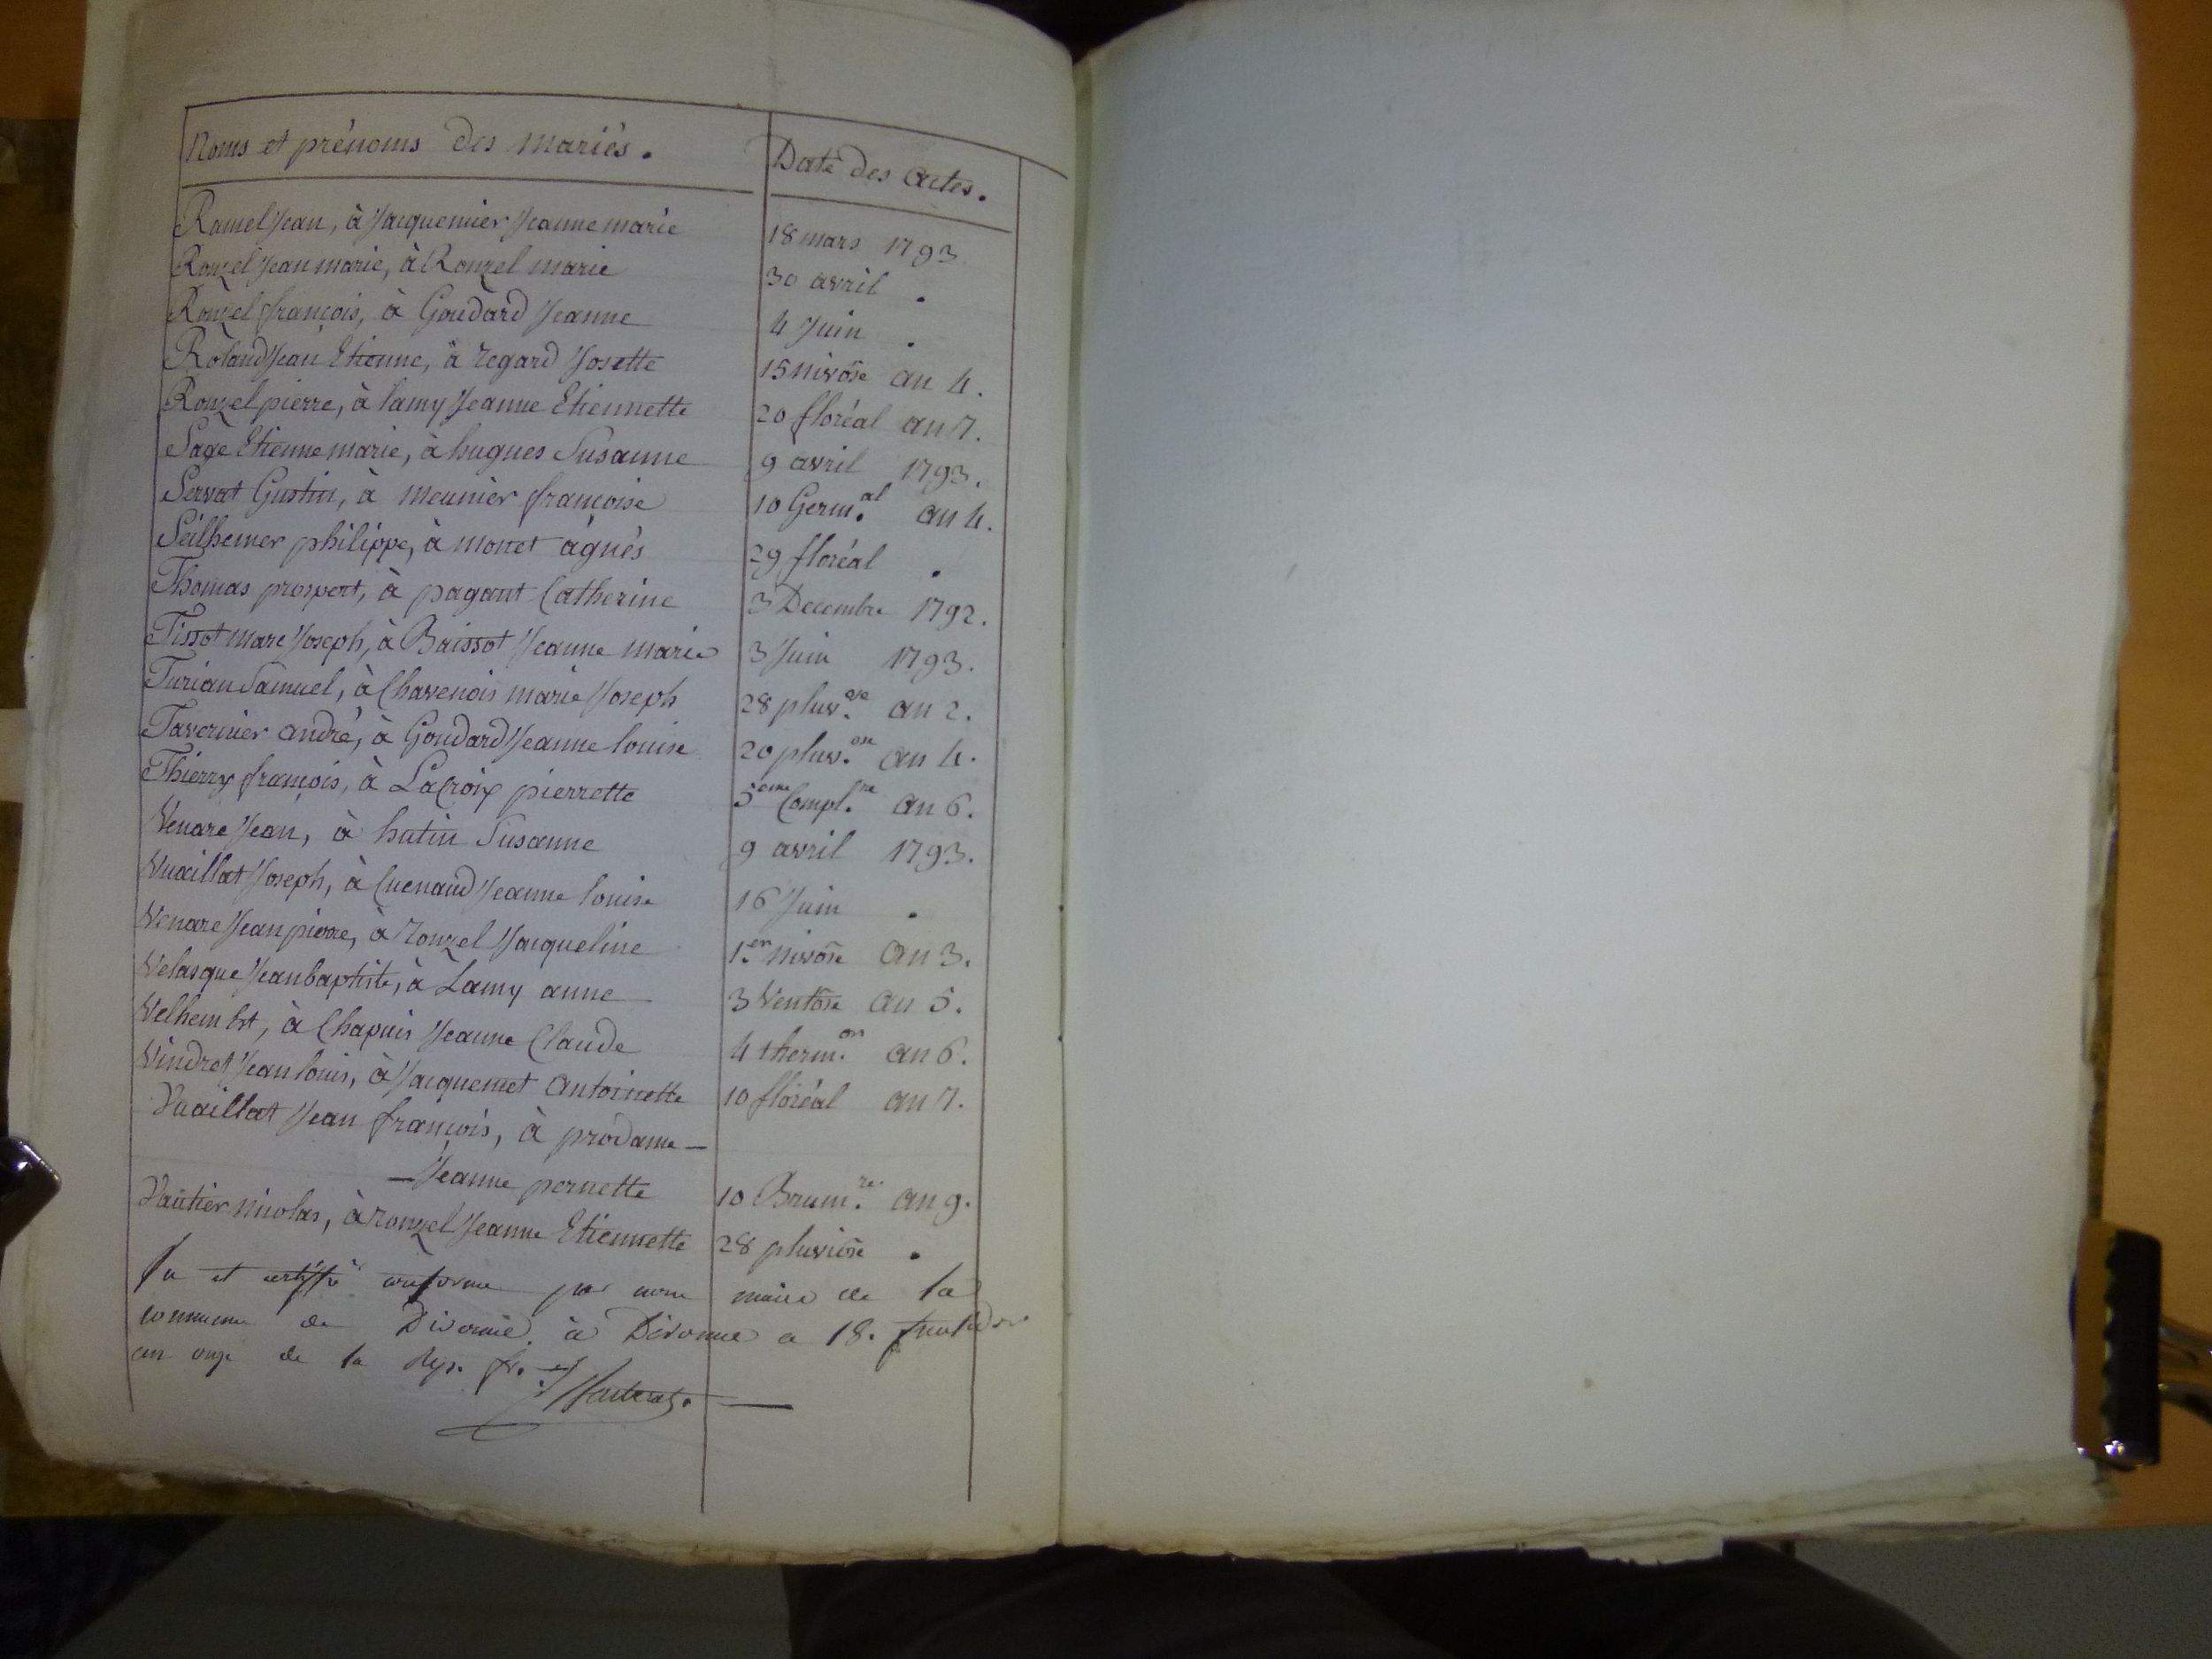 Noms et prénoms des mariés. Date des actes.
Ramel Jean, à Jacquemier Jeanne marie 18 mars 1793
Rouzel Jean marie, à Rouzel marie 30 avril .
Rouzel françois, à Goudard Jeanne 4 Juin .
Roland Jean Etienne, à regard Josette 15 nivôse an 4.
Rouzel pierre, à lamy Jeanne Etiennette 20 floréal an 7.
Sage Etienne marie, à hugues Susanne 9 avril 1793.
Servat Gustin, à meunier françoise 10 Germ.al an 4.
Seilhemer philippe, à monet agnès 29 floréal .
Thomas prospert, à pagant Catherine 3 Decembre 1792.
Tissot marc Joseph, à Baissot Jeanne marie 3 Juin 1793.
Turian Samuel, à Chavenois marie Joseph 28 pluv.ose an 2.
Tavernier andré, à Goudard Jeanne louise 20 pluv.ose an 4.
Thierry françois, à LaCroix pierrette 5eme Compl.re an 6.
Venare Jean, à hutin Susanne 9 avril 1793.
Vuaillat Joseph, à Cuenaud Jeanne louise 16 Juin .
Venare Jean pierre, à rouzel Jacqueline 1.er nivôse an 3.
Velasque Jean baptiste, à Lamy anne 3 Ventôse an 5.
à Chapuis Jeanne Claude 4 therm.or an 6.
Vindret Jean louis, à Jacquemet antoinette 10 floréal an 7.
Vuaillat Jean françois, à prodame —
— Jeanne pernette 10 Brum.re an 9.
Vautier nicolas, à rouzel Jeanne Etiennette 28 pluviôse .
Vu et certiffié conforme par nous maire de la
commune de Divonne. à Divonne a 18. fructidor
an onze de la Rep. fr.